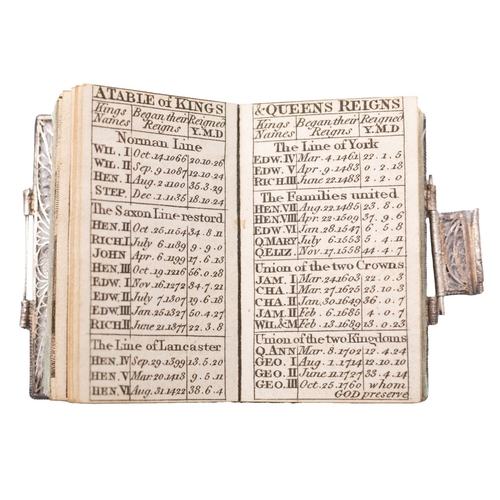 A TABLE of KINGS
Kings Names Began their Reigns Reigned Y.M.D
Norman Line
WIL. I Oct.14.1066 20.10.26
WIL. II Sep.9.1087 12.10.24
HEN. I Aug.2.1100 35.3.29
STEP. Dec.1.1135 18.10.24
The Saxon Line restord
HEN. II Oct.25.1154 34.8.11
RICH. I July 6.1189 9.9.0
JOHN Apr.6.1199 17.6.13
HEN. III Oct.19.1216 56.0.28
EDW. I Nov.16.1272 34.7.21
EDW. II July 7.1307 19.6.18
EDW. III Jan.25.1327 50.4.27
RICH. II June 21.1377 22.3.8
The Line of Lancaster
HEN. IV Sep.29.1399 13.5.20
HEN. V Mar.20.1413 9.5.11
HEN. VI Aug.31.1422 38.6.4
& QUEENS REIGNS
Kings Names Began their Reigns Reigned Y.M.D
The Line of York
EDW. IV Mar.4.1461 22.1.5
EDW. V Apr.9.1483 0.2.13
RICH. III June 22.1483 2.2.0
The Families united
HEN. VII Aug.22.1485 23.8.0
HEN. VIII Apr.22.1509 37.9.6
EDW. VI Jan.28.1547 6.5.8
Q. MARY July 6.1553 5.4.11
Q. ELIZ. Nov.17.1558 44.4.7
Union of the two Crowns
JAM. I Mar.24.1603 22.0.3
CHA. I Mar.27.1625 23.10.3
CHA. II Jan.30.1649 36.0.7
JAM. II Feb.6.1685 4.0.7
WIL.& M. Feb.13.1689 13.0.23
Union of the two Kingdoms
Q. ANN Mar.8.1702 12.4.24
GEO. I Aug.1.1714 12.10.10
GEO. II June 11.1727 33.4.14
GEO. III Oct.25.1760 whom
GOD preserve